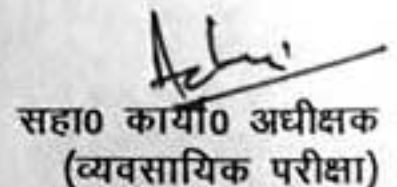 सहा0 कार्या0 अधीक्षक
(व्यवसायिक परीक्षा)